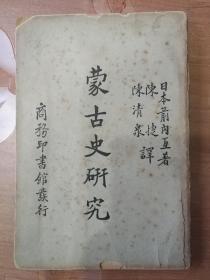 日本箭內亙著
陳捷
陳清泉
譯
蒙古史研究
商務印書館發行